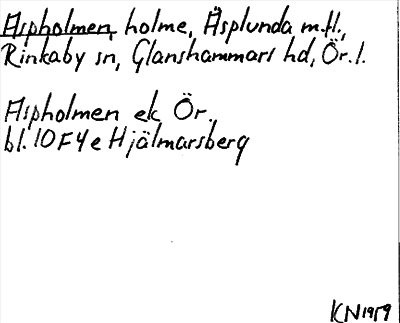 Aspholmen, holme, Äsplunda m.fl.,
Rinkaby sn, Glanshammars hd, Ör. l.
Aspholmen ek Ör.
bl. 10F4e Hjälmarsberg
KN1959